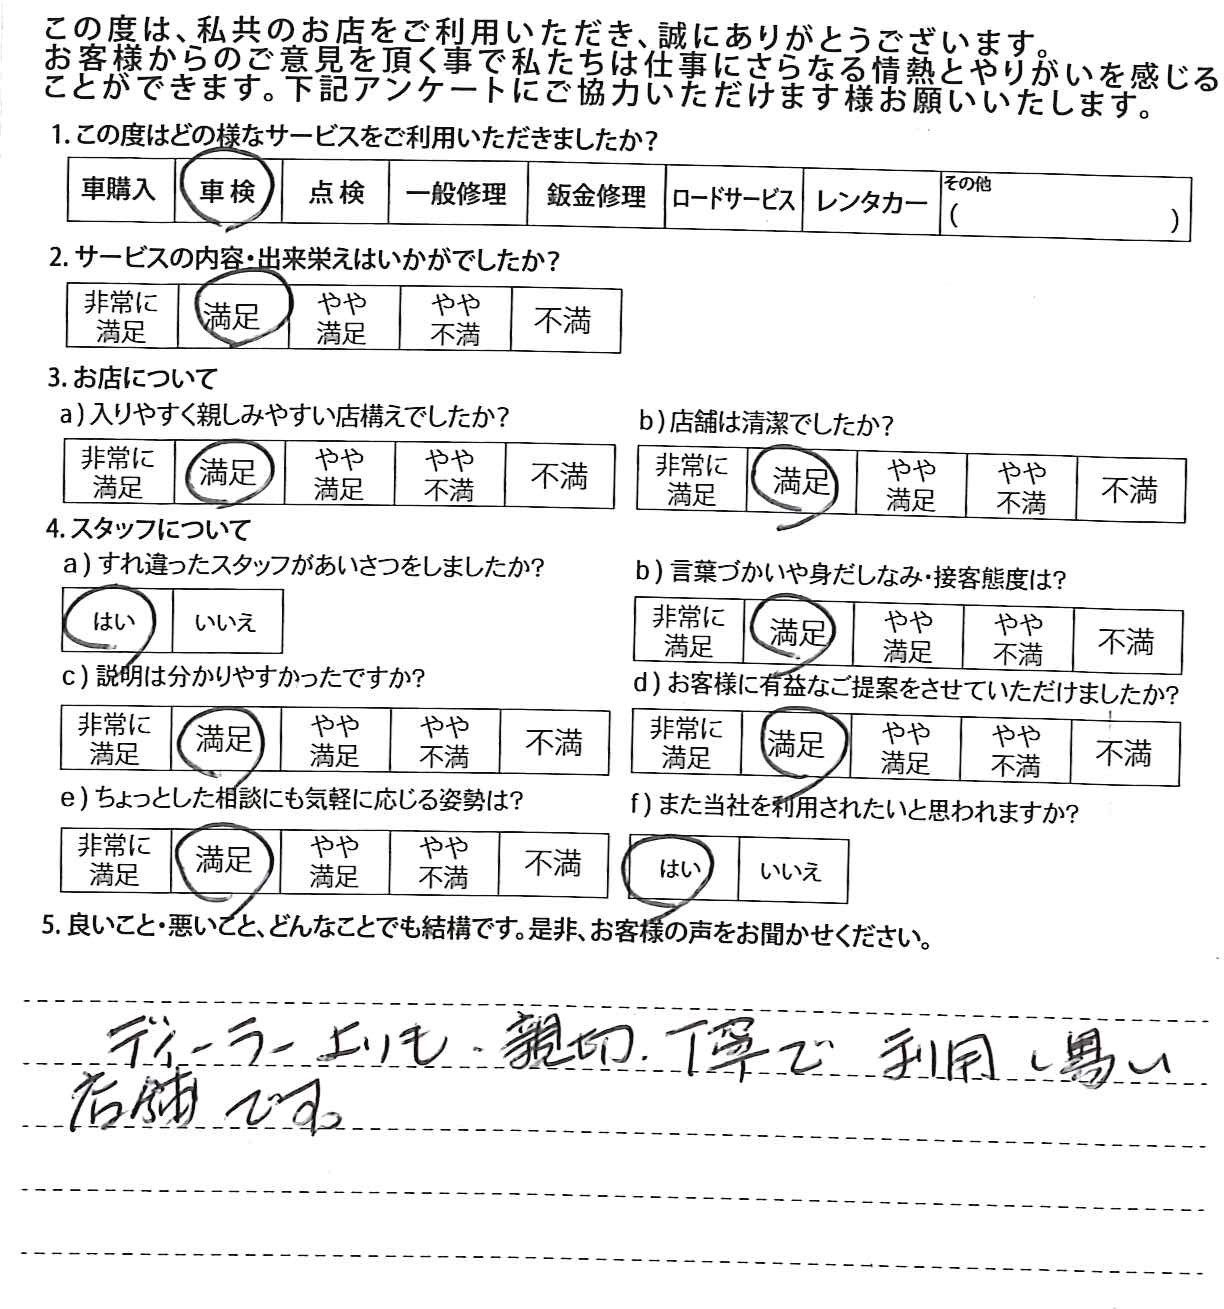 この度は、私共のお店をご利用いただき、誠にありがとうございます。
お客様からのご意見を頂く事で私たちは仕事にさらなる情熱とやりがいを感じる
ことができます。下記アンケートにご協力いただけます様お願いいたします。
1. この度はどの様なサービスをご利用いただきましたか?
車購入 車検 点検 一般修理 鈑金修理 ロードサービス レンタカー その他 ( )
2. サービスの内容・出来栄えはいかがでしたか?
非常に満足 満足 やや満足 やや不満 不満
3. お店について
a) 入りやすく親しみやすい店構えでしたか?
非常に満足 満足 やや満足 やや不満 不満
b) 店舗は清潔でしたか?
非常に満足 満足 やや満足 やや不満 不満
4. スタッフについて
a) すれ違ったスタッフがあいさつをしましたか?
はい いいえ
b) 言葉づかいや身だしなみ・接客態度は?
非常に満足 満足 やや満足 やや不満 不満
c) 説明は分かりやすかったですか?
非常に満足 満足 やや満足 やや不満 不満
d) お客様に有益なご提案をさせていただけましたか?
非常に満足 満足 やや満足 やや不満 不満
e) ちょっとした相談にも気軽に応じる姿勢は?
非常に満足 満足 やや満足 やや不満 不満
f) また当社を利用されたいと思われますか?
はい いいえ
5. 良いこと・悪いこと、どんなことでも結構です。是非、お客様の声をお聞かせください。
ディーラーよりも、親切、丁寧で 利用し易い
店舗です。